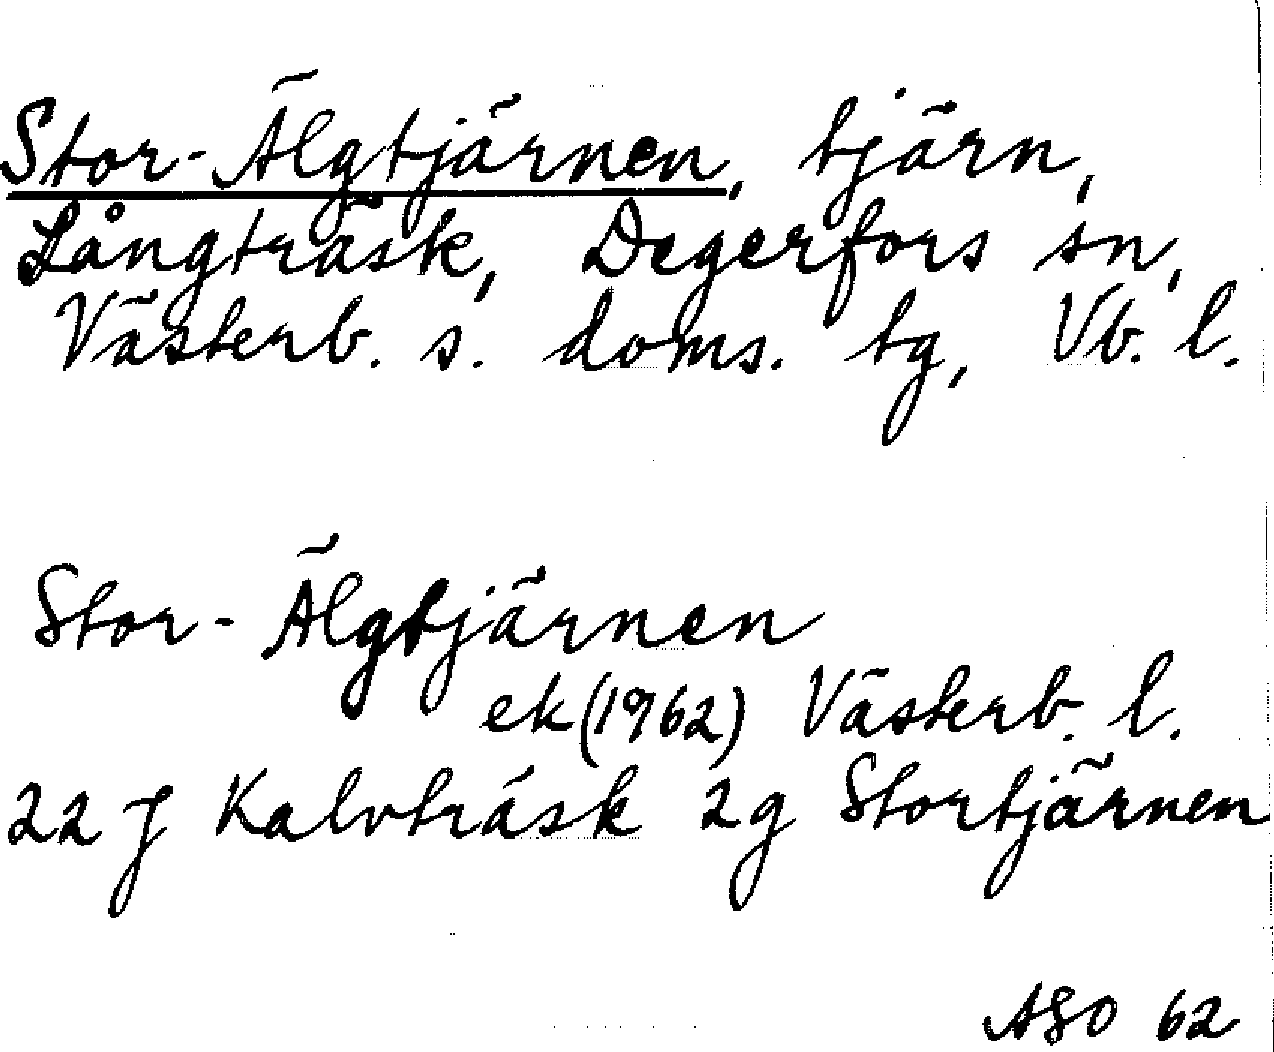 Stor-Älgtjärnen, tjärn,
Långträsk, Degerfors sn,
Västerb. s. doms. tg, Vb. l.
Stor-Älgtjärnen
ek (1962) Västerb. l.
22 J Kalvträsk 2g Stortjärnen
ASO 62